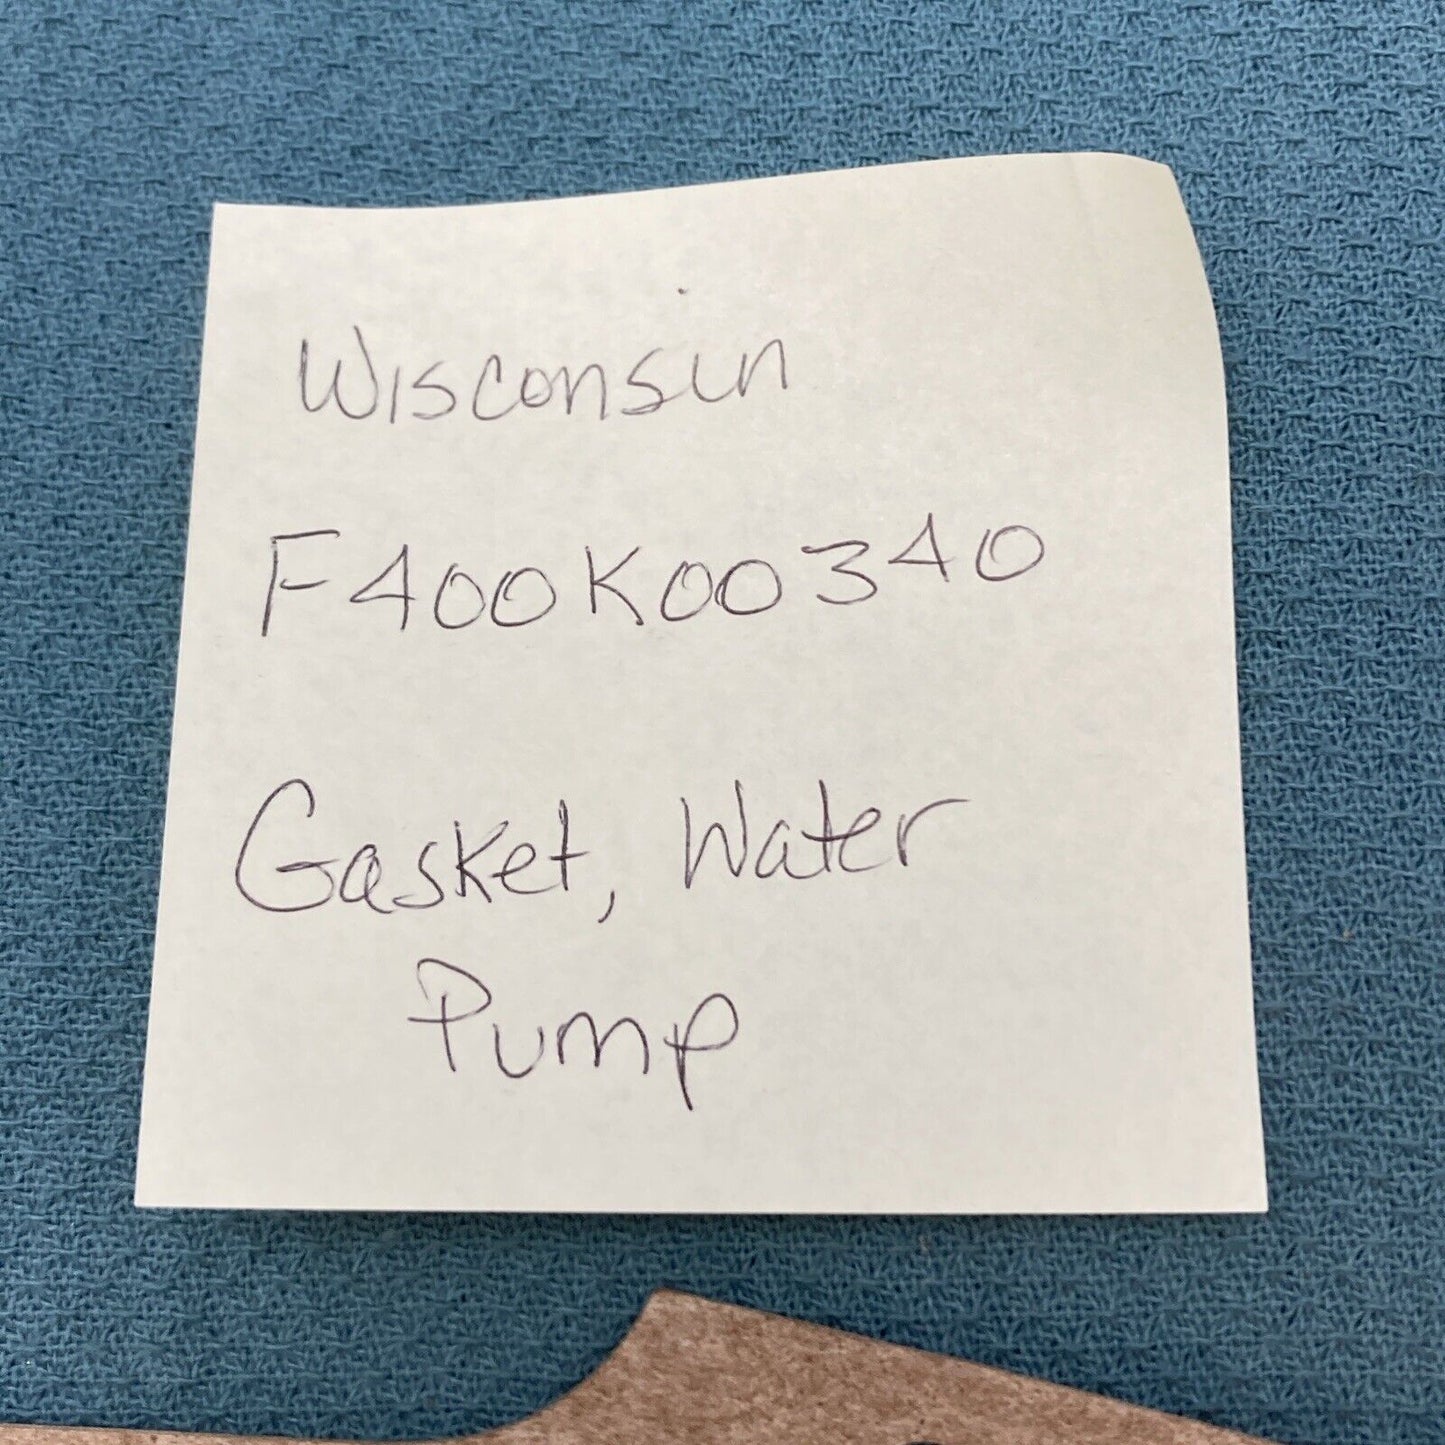 Wisconsin
F400K00340
Gasket, Water
Pump